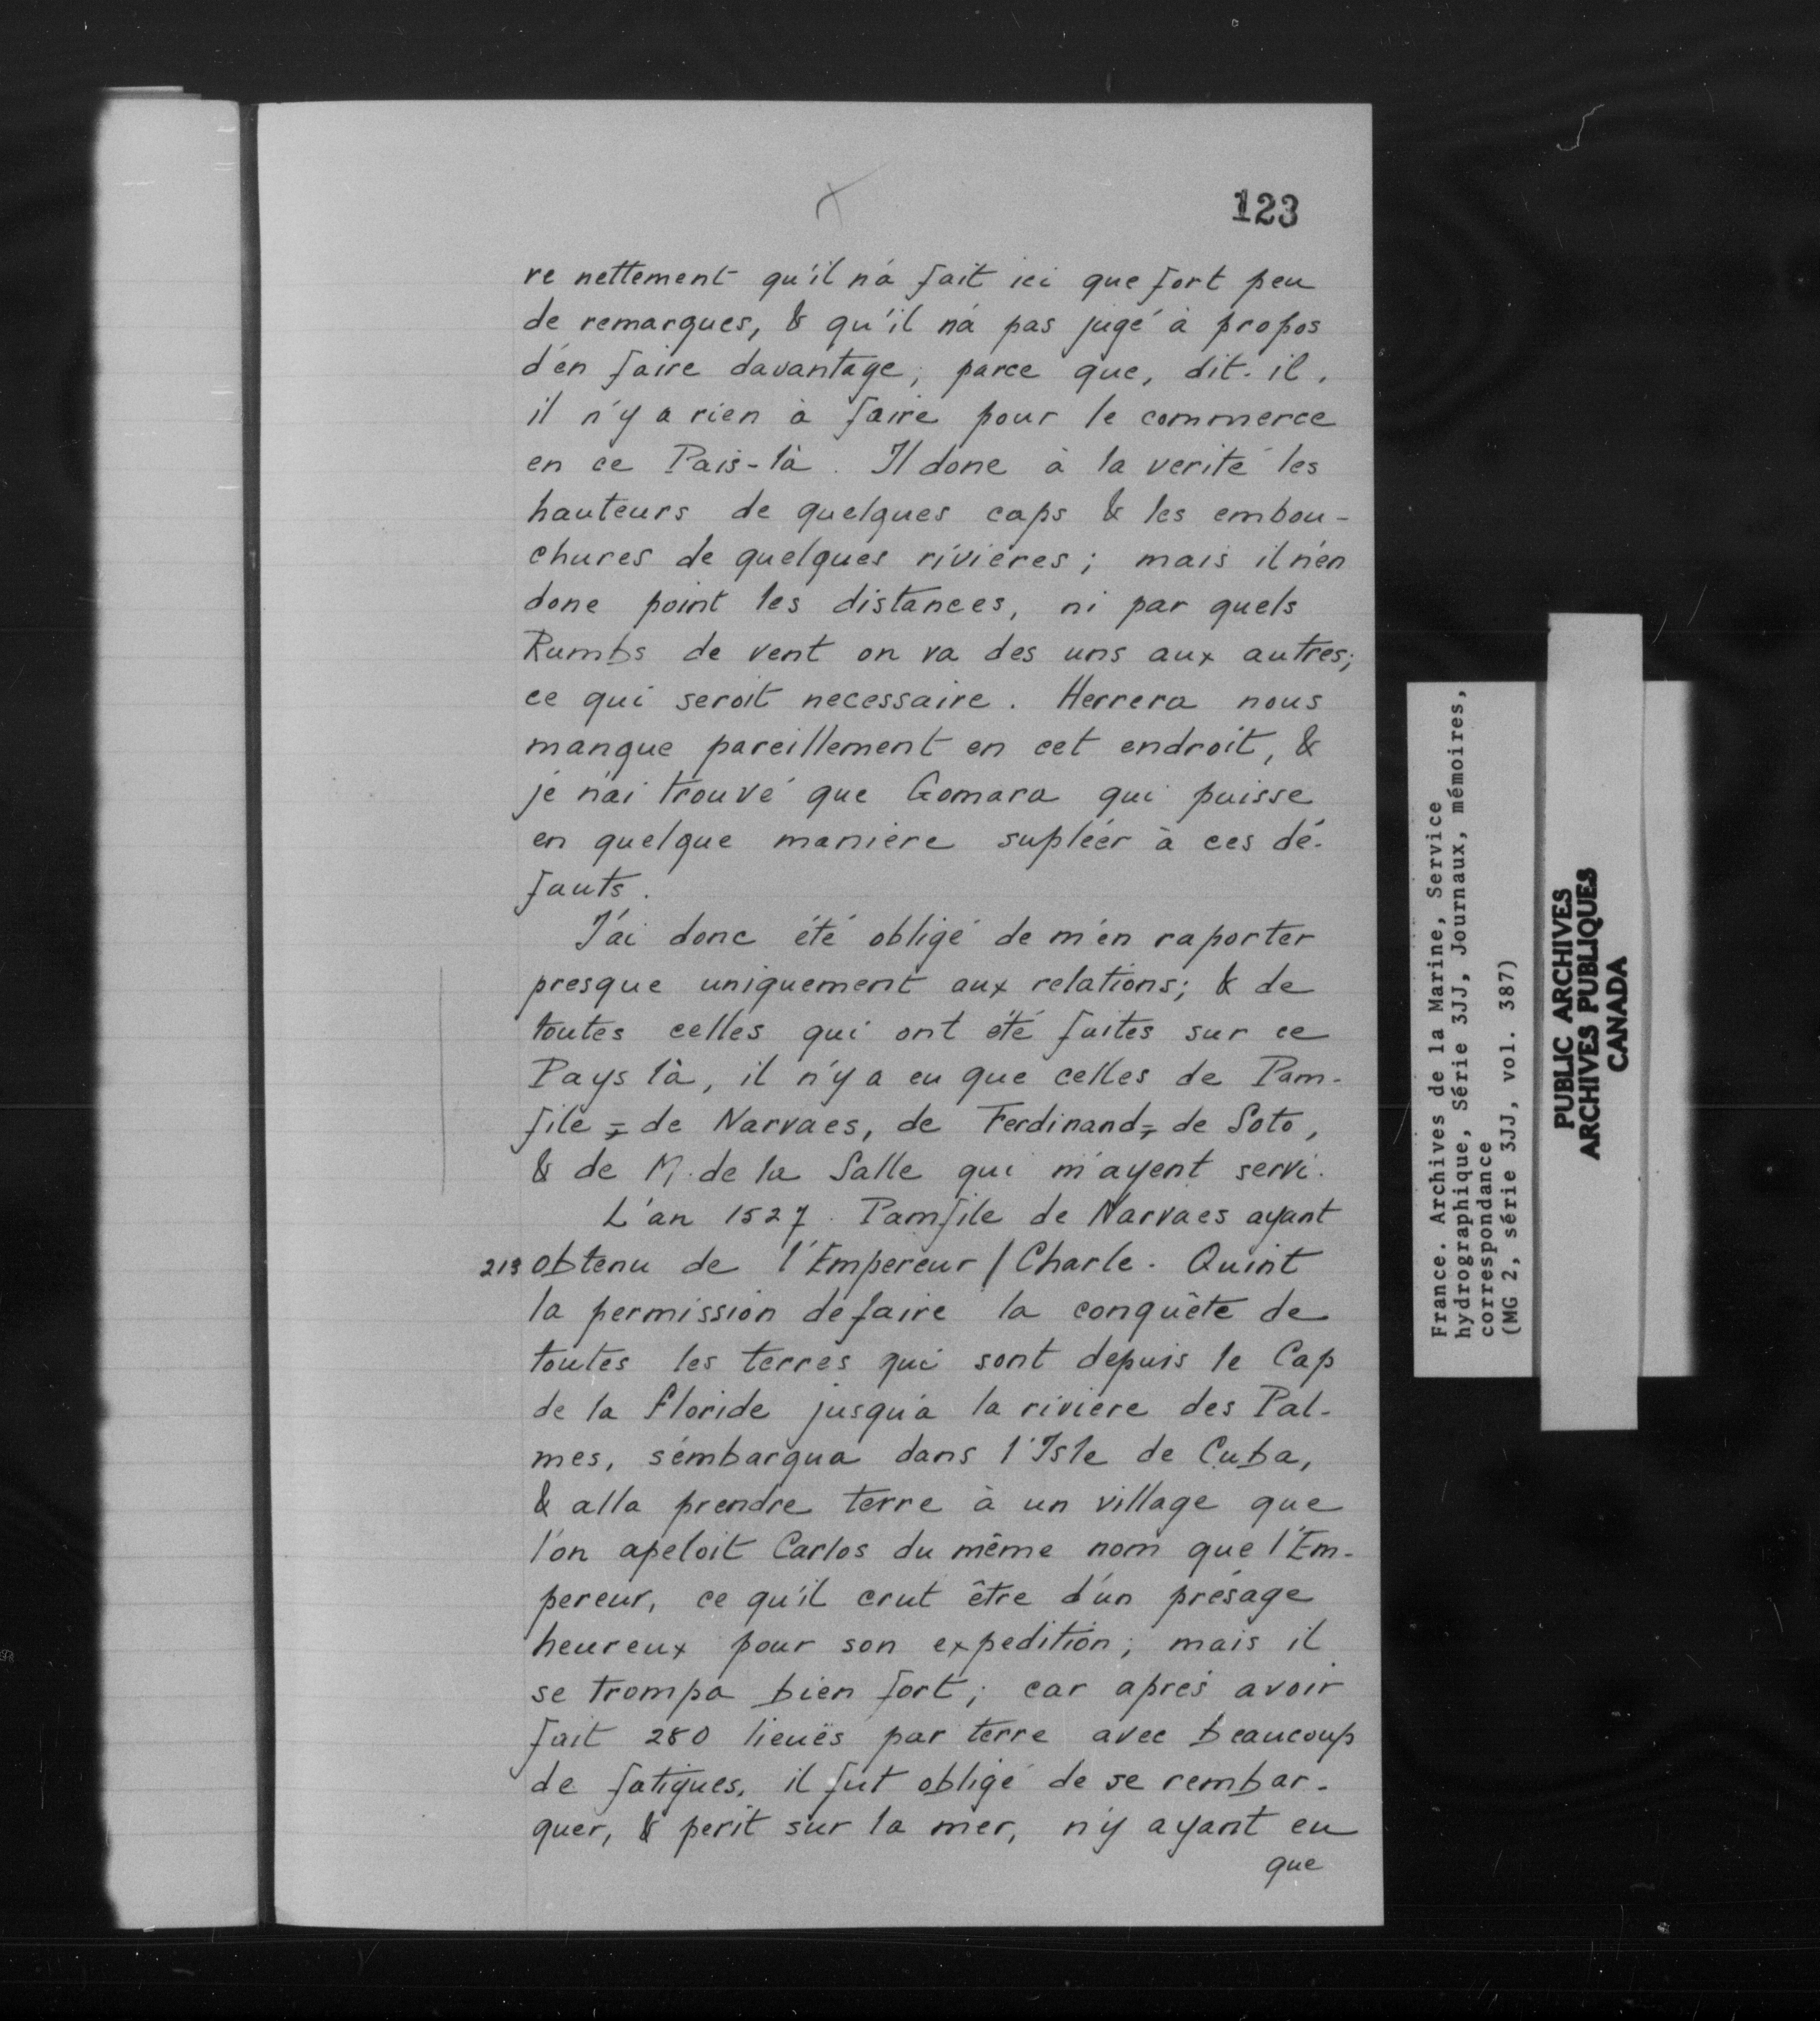 123
re nettement qu'il n'a fait ici que fort peu
de remarques, & qu'il n'a pas jugé à propos
d'en faire davantage, parce que, dit-il,
il n'y a rien à faire pour le commerce
en ce Païs-là. Il done à la verité les
hauteurs de quelques caps & les embou-
chures de quelques rivieres; mais il n'en
done point les distances, ni par quels
Rumbs de vent on va des uns aux autres;
ce qui seroit necessaire. Herrera nous
manque pareillement en cet endroit, &
je n'ai trouvé que Gomara qui puisse
en quelque maniere supléer à ces dé-
fauts.
J'ai donc été obligé de m'en raporter
presque uniquement aux relations; & de
toutes celles qui ont été faites sur ce
Pays là, il n'y a eu que celles de Pam-
file = de Narvaes, de Ferdinand = de Soto,
& de M. de la Salle qui m'ayent servi.
L'an 1527. Pamfile de Narvaes ayant
213 obtenu de l'Empereur / Charle-Quint
la permission de faire la conquête de
toutes les terres qui sont depuis le Cap
de la floride jusqu'à la riviere des Pal-
mes, s'embarqua dans l'Isle de Cuba,
& alla prendre terre à un village que
l'on apeloit Carlos du même nom que l'Em-
pereur, ce qu'il crut être d'un présage
heureux pour son expedition; mais il
se trompa bien fort; car aprés avoir
fait 280 lieuës par terre avec beaucoup
de fatigues, il fut obligé de se rembar-
quer, & perit sur la mer, n'y ayant eu
que
France. Archives de la Marine, Service
hydrographique, Série 3JJ, Journaux, mémoires,
correspondance
(MG 2, série 3JJ, vol. 387)
PUBLIC ARCHIVES
ARCHIVES PUBLIQUES
CANADA